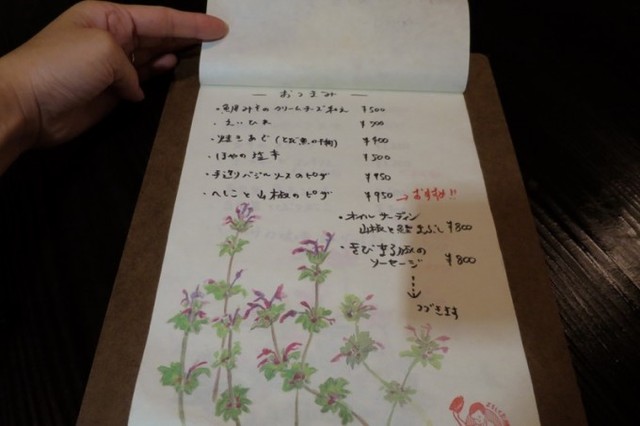 — おつまみ —
・魚醤みそのクリームチーズ和え ¥500
・えいひれ ¥700
・焼きあご(とび魚の干物) ¥400
・ほやの塩辛 ¥500
・手造りバジルソースのピザ ¥950
・へしこと山椒のピザ ¥950 →おすすめ!!
・オイルサーディン
山椒と鮭まぶし ¥800
・きび
ソーセージ ¥800
つづきます